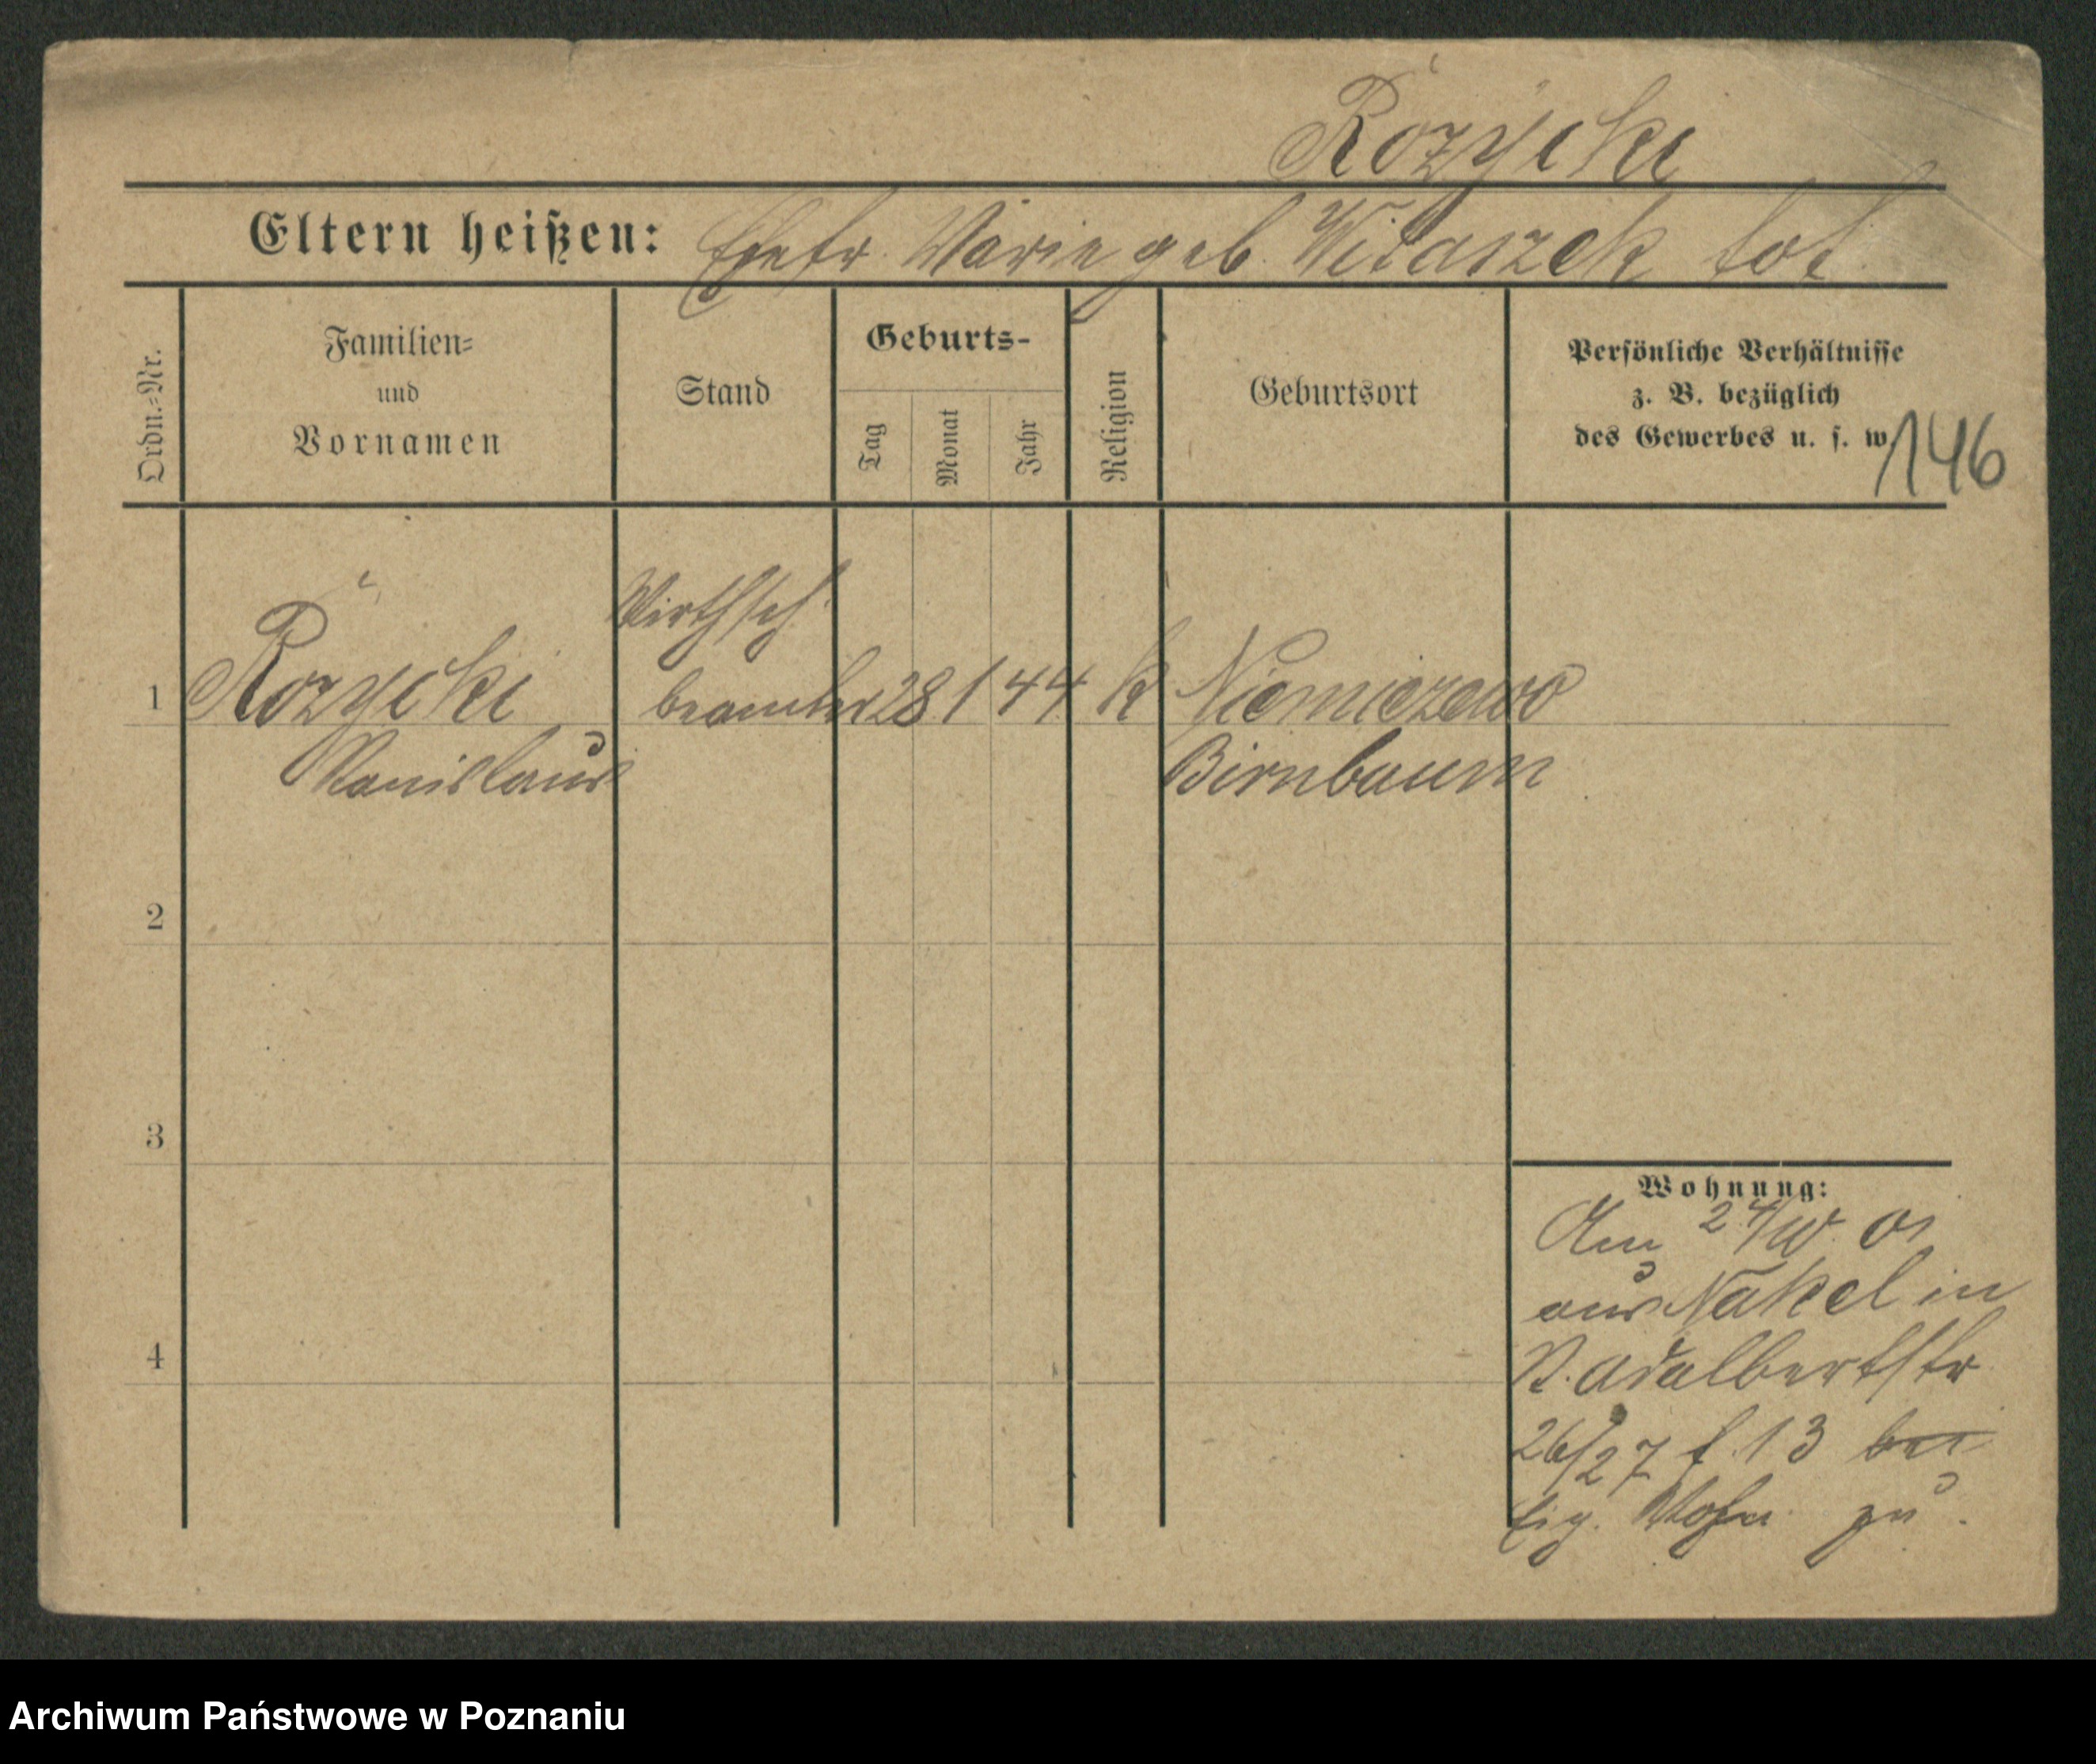 Rózycki
Eltern heißen: Ehefr. Marie geb. Witaszek tot
Ordn.=Nr.
Familien=
und
Vornamen
Stand
Geburts-
Tag
Monat
Jahr
Religion
Geburtsort
Persönliche Verhältnisse
z. B. bezüglich
des Gewerbes u. s. w.
146
Wirthsch.
1 Rózycki beamter 28 1 44 K Niemiczewo
Stanislaus Birnbaum
2
3
4
Wohnung:
Am 24/10. 01
aus Nakel in
St. Adalbertstr
26/27 f. 13 bei
Eig. Wohn. zu.
Archiwum Państwowe w Poznaniu